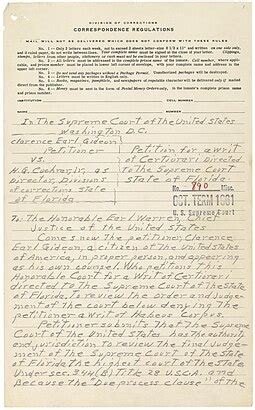 DIVISION OF CORRECTIONS
CORRESPONDENCE REGULATIONS
MAIL WILL NOT BE DELIVERED WHICH DOES NOT CONFORM WITH THESE RULES
No. 1 -- Only 2 letters each week, not to exceed 2 sheets letter-size 8 1/2 x 11" and written on one side only,
and if ruled paper, do not write between lines. Your complete name must be signed at the close of your letter. Clippings,
stamps, letters from other people, stationery or cash must not be enclosed in your letters.
No. 2 -- All letters must be addressed in the complete prison name of the inmate. Cell number, where applicable,
and prison number must be placed in lower left corner of envelope, with your complete name and address in the
upper left corner.
No. 3 -- Do not send any packages without a Package Permit. Unauthorized packages will be destroyed.
No. 4 -- Letters must be written in English only.
No. 5 -- Books, magazines, pamphlets, and newspapers of reputable character will be delivered only if mailed
direct from the publisher.
No. 6 -- Money must be sent in the form of Postal Money Orders only, in the inmate's complete prison name
and prison number.
INSTITUTION CELL NUMBER
NAME NUMBER
In The Supreme Court of The United States
Washington D.C.
Clarence Earl Gideon
Petitioner
vs.
H.G. Cochran, Jr., as
Director, Divisions
of corrections State
of Florida
Petition for a Writ
of Certiorari Directed
to The Supreme Court
State of Florida.
No. 790 Misc.
OCT. TERM 1961
U. S. Supreme Court
To: The Honorable Earl Warren, Chief
Justice of the United States
Comes now the petitioner, Clarence
Earl Gideon, a citizen of The United states
of America, in proper person, and appearing
as his own counsel. Who petitions this
Honorable Court for a Writ of Certiorari
directed to The Supreme Court of The State
of Florida. To review the order and Judge-
ment of the court below denying The
petitioner a writ of Habeus Corpus.
Petitioner submits That The Supreme
Court of The United States has The authority
and jurisdiction to review the final Judge-
ment of The Supreme Court of The State
of Florida the highest court of The State
Under sec. 344(B) Title 28 U.S.C.A. and
Because The "Due process clause" of the